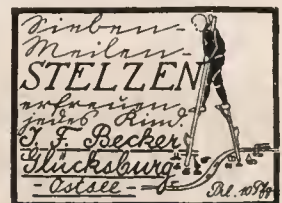 Sieben-
Meilen-
STELZEN
erfreuen
jedes Kind.
J. F. Becker
Glücksburg
- Ostsee -
Prl. 10 Pfg.